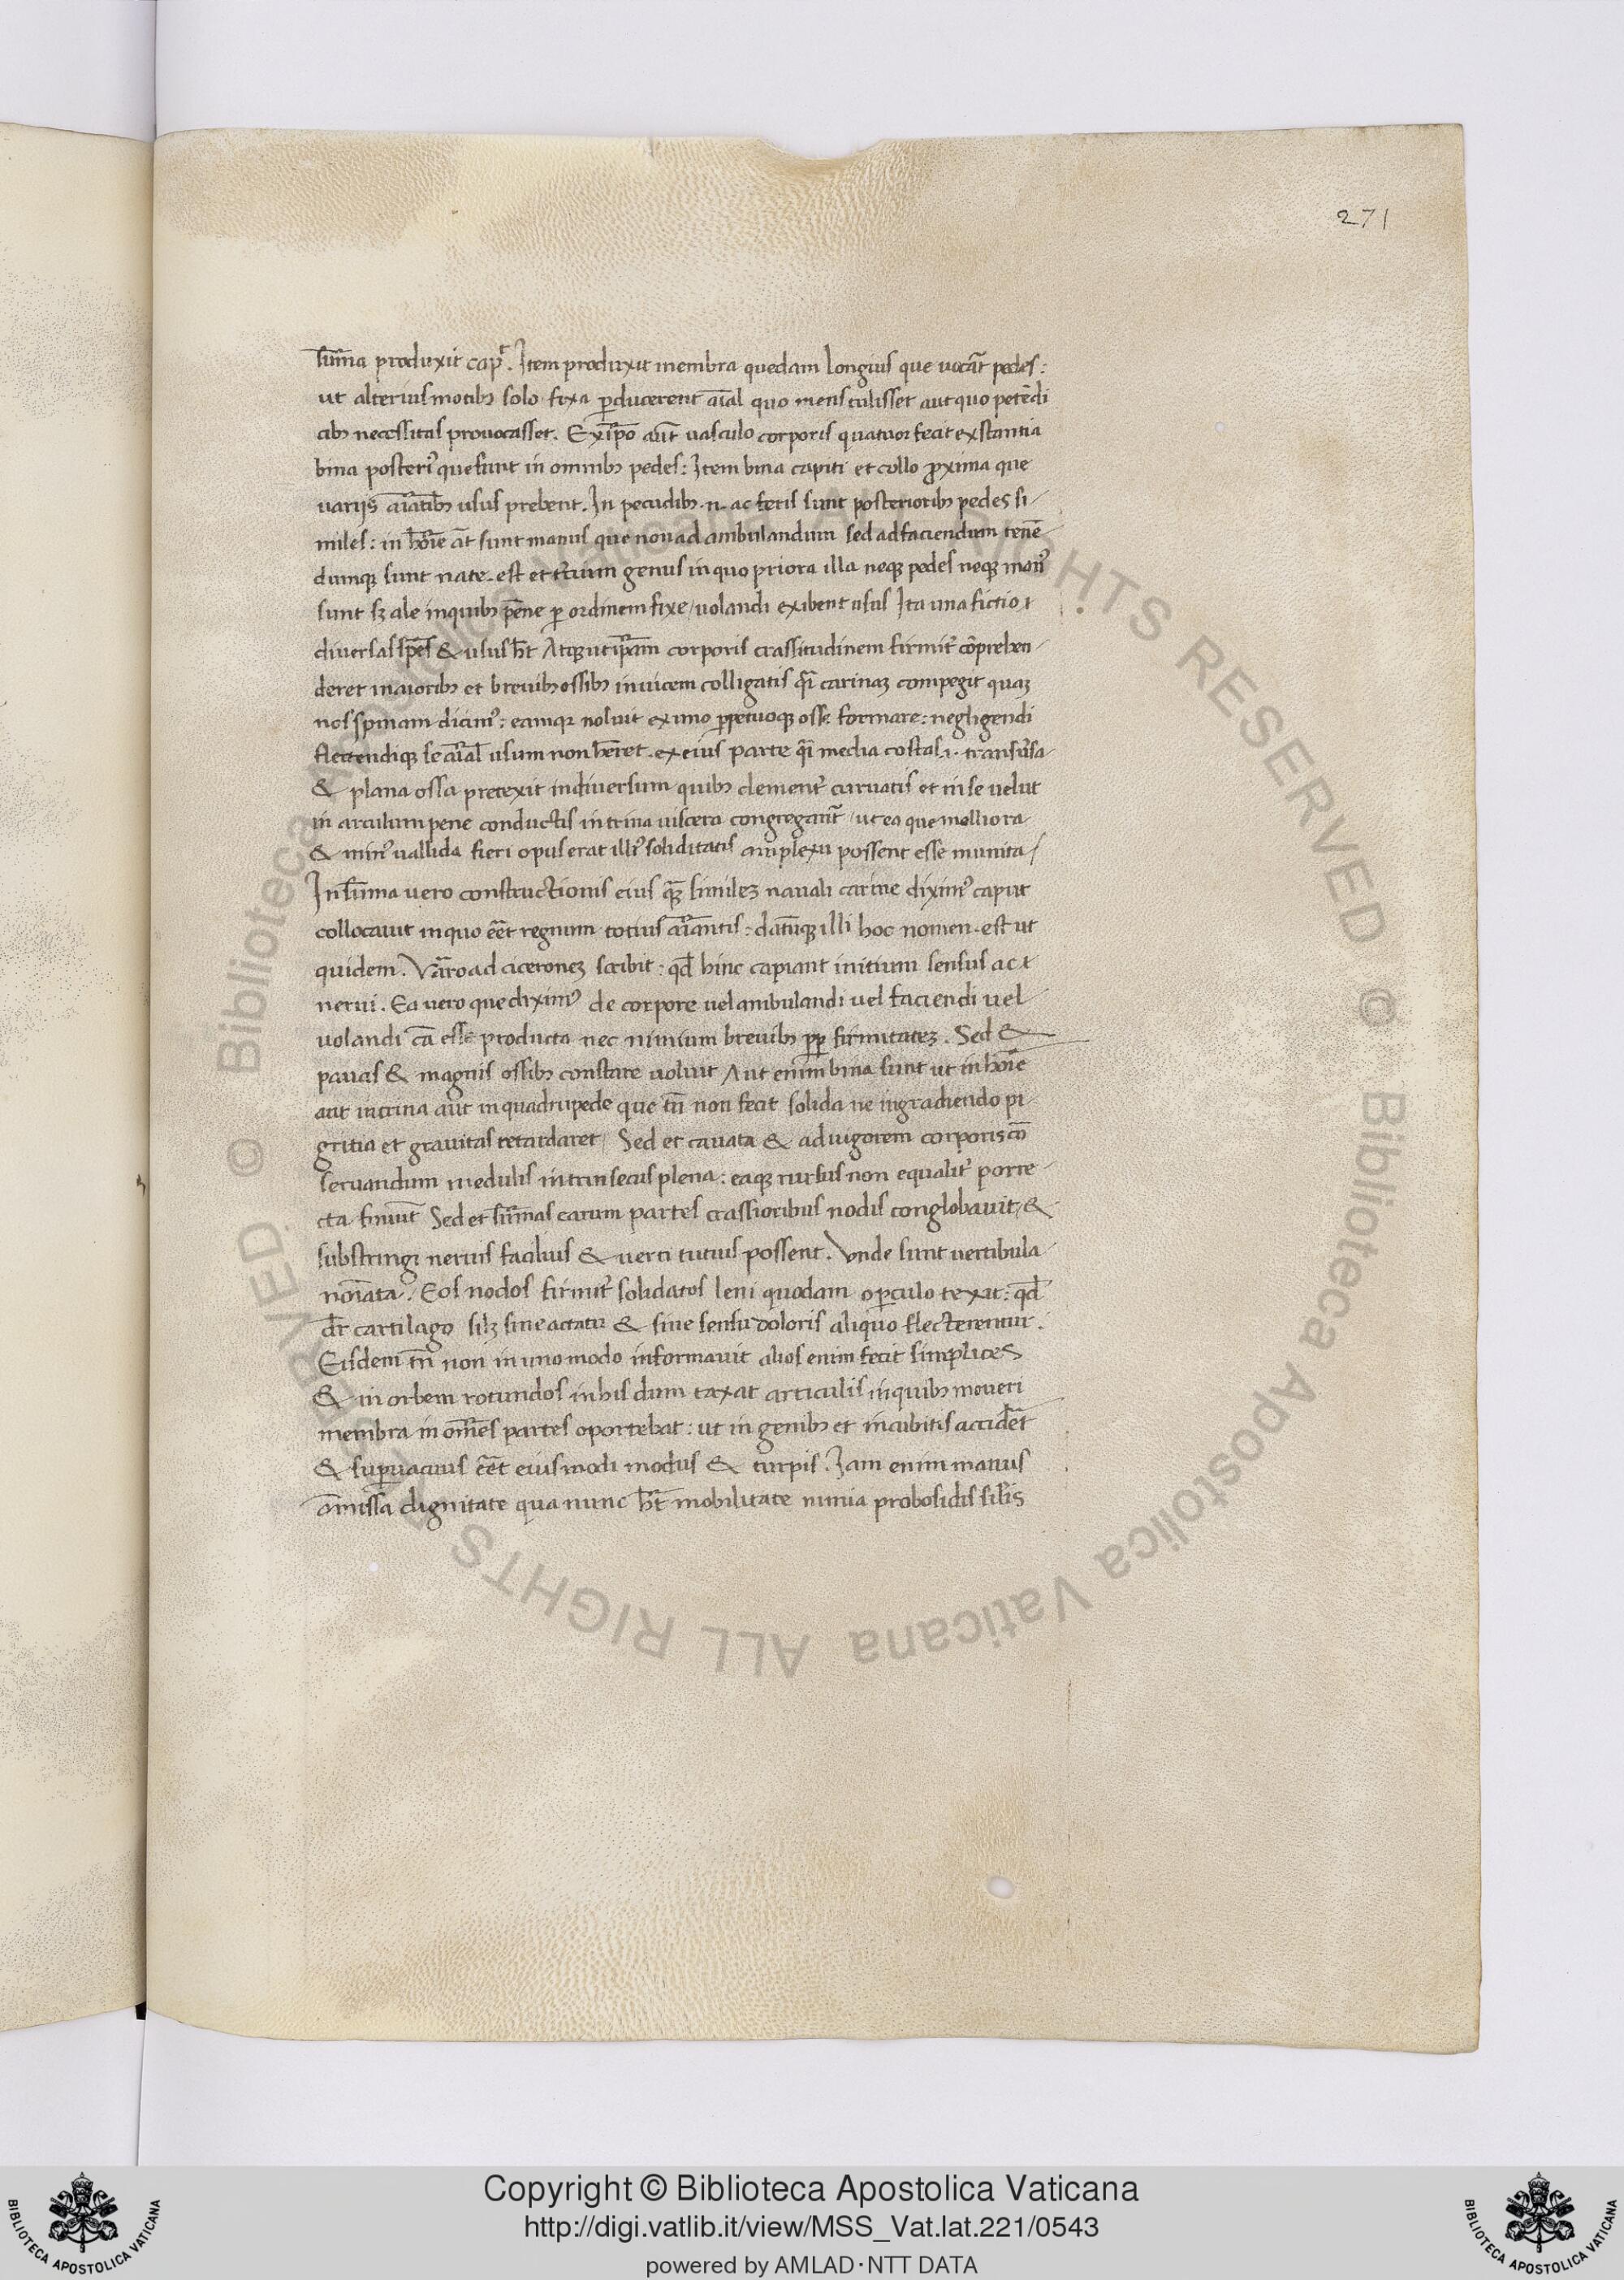 271
sūma produxit capt͛. Item produxit membra quedam longius que uocāt pedes:
ut alterius motibꝫ solo fixa ꝑducerent aīal quo mens tulisset aut quo petēdi
cibꝫ necessitas prouocasset. Ex ip̄o aūt uasculo corporis quatuor fecit exstantia
bina posteriꝰ que sunt in omnibꝫ pedes: Item bina capiti et collo ꝓxima que
uarijs aīantibꝫ usus prebent. In pecudibꝫ .n. ac feris sunt posterioribꝫ pedes si-
miles: in hōie āt sunt manus que non ad ambulandum sed ad faciendum tenē-
dumqꝫ sunt nate. est et tertium genus in quo priora illa neqꝫ pedes neqꝫ manꝰ
sunt sꝫ ale in quibꝫ pēne ꝑ ordinem fixe/ uolandi exibent usus Ita una fictio
diuersas sp̄es & usus h̄t Atqꝫ ut ip̄am corporis crassitudinem firmit͛ cōprehen-
deret maioribꝫ et breuibꝫ ossibꝫ inuicem colligatis q̄i carinaꝫ compegit quaꝫ
nos spinam dicimꝰ: eamqꝫ noluit ex uno ꝑpetuoqꝫ osse formare: ne gligendi
flectendiqꝫ se aīal usum non h̄eret. ex eius parte q̄i media costas .i. transūsa
& plana ossa pretexit in diuersum quibꝫ clement͛ curuatis et in se uelut
in arculum pene conductis intrina uiscera congregant͛/ ut ea que molliora
& minꝰ uallida fieri opus erat illiꝰ soliditatis amplexu possent esse munita/
In sūma uero constructionis eius quā simileꝫ nauali carine diximꝰ caput
collocauit in quo eēt regnum totius aīantis: datūqꝫ illi hoc nomen est ut
quidem. Vārro ad ciceroneꝫ scribit: qđ hinc capiant initium sensus ac
nerui. Ea uero que diximꝰ de corpore uel ambulandi uel faciendi uel
uolandi cā esse producta nec nimium breuibꝫ ꝓꝑ firmitateꝫ. Sed &
pauas & magnis ossibꝫ constare uoluit Aut enim bina sunt ut in hōie
aut intrina aut in quadrupede que tn̄ non fecit solida ne in gradiendo pi-
gritia et grauitas retardaret/ Sed et cauata & ad uigorem corporis cō
seruandum medulis intrinsecus plena: eaqꝫ rursus non equalit͛ porre-
cta finiuit Sed et sūmas earum partes crassioribus nodis conglobauit/ &
substringi neruis facilius & uerti tutius possent. Vnde sunt uertibula
noīata. Eos nodos firmit͛ solidatos leni quodam oꝑculo texit: qđ
dr̄ cartilago silꝫ sine actatu & sine sensu doloris aliquo flecterentur.
Eisdem tn̄ non in uno modo informauit alios enim fecit simplices
& in orbem rotundos in his dum taxat articulis in quibꝫ moueri
membra in om̄es partes oportebat: ut in genibꝫ et in cubitis accidēt
& suꝑuacuus eēt eiusmodi modus & turpis. Iam enim manus
āmissa dignitate qua nunc h̄t mobilitate nimia probosidis sil̄is
Copyright © Biblioteca Apostolica Vaticana
http://digi.vatlib.it/view/MSS_Vat.lat.221/0543
powered by AMLAD·NTT DATA
BIBLIOTECA APOSTOLICA VATICANA
BIBLIOTECA APOSTOLICA VATICANA
© Biblioteca Apostolica Vaticana ALL RIGHTS RESERVED © Biblioteca Apostolica Vaticana ALL RIGHTS RESERVED